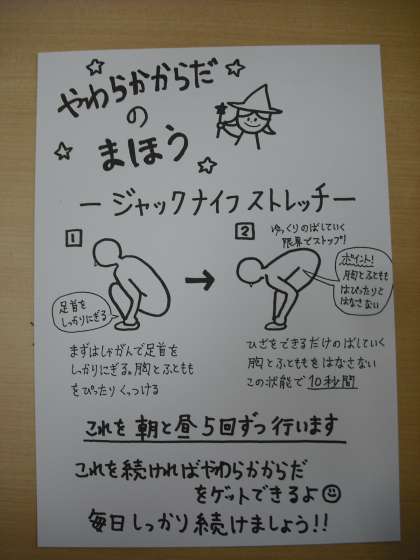 やわらかからだ
の
まほう
－ジャックナイフストレッチ－
1
足首を
しっかりにぎる
まずはしゃがんで足首を
しっかりにぎる。胸とふともも
をぴったりくっつける
2
ゆっくりのばしていく
限界でストップ!
ポイント!
胸とふともも
はぴったりと
はなさない
ひざをできるだけのばしていく
胸とふとももをはなさない
この状態で10秒間
これを朝と昼5回ずつ行います
これを続ければやわらかからだ
をゲットできるよ☺
毎日しっかり続けましょう!!